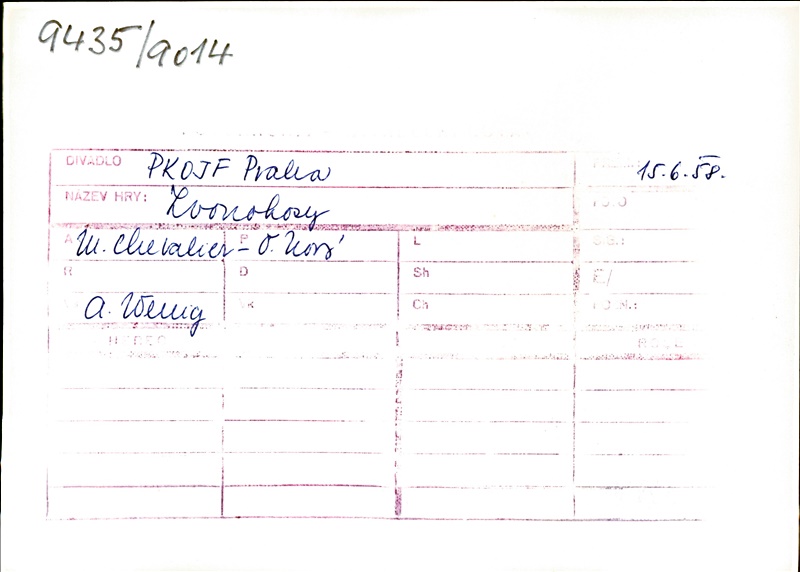 9435/9014
DIVADLO PKOJF Praha 15.6.58.
NÁZEV HRY: Zvonokosy FOTO
M. Chevalier - O. Nový L
R D Sh E/
A. Wenig Ch
HEREC ROLE